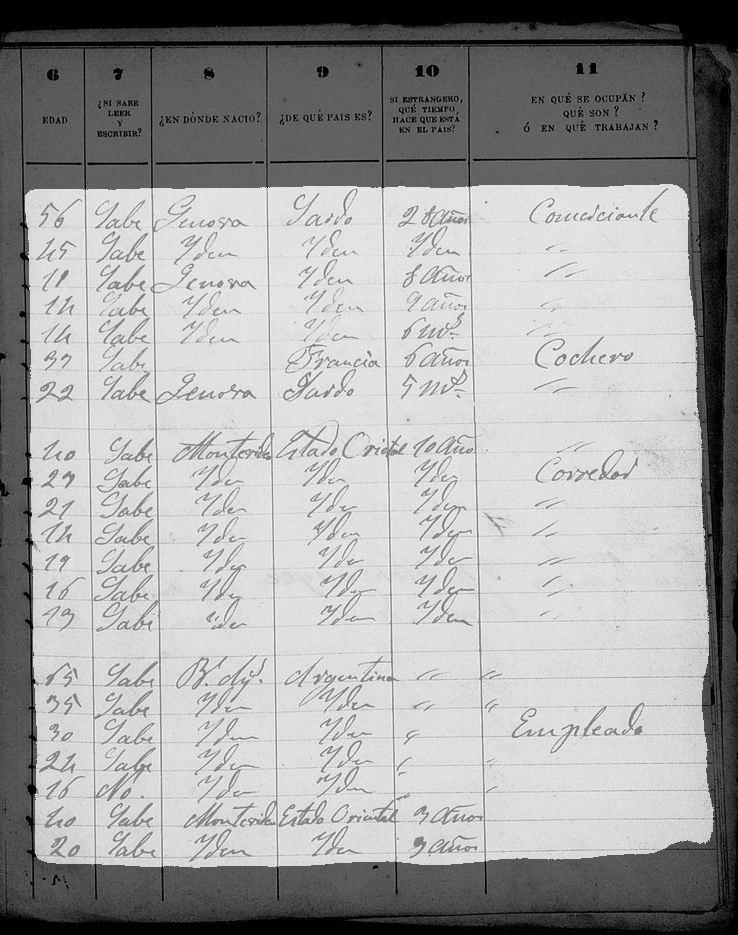 6 7 8 9 10 11
EDAD ¿SI SABE LEER Y ESCRIBIR? ¿EN DÓNDE NACIO? ¿DE QUÉ PAIS ES? SI ESTRANGERO, QUÉ TIEMPO, HACE QUE ESTÁ EN EL PAIS? EN QUÉ SE OCUPÁN? QUÉ SON? Ó EN QUÉ TRABAJAN?
56 Sabe Genova Sardo 28 años Comerciante
45 Sabe Yden Yden Yden "
11 Sabe Genova Yden 8 años "
14 Sabe Yden Yden 9 años "
14 Sabe Yden Yden 6 ms. "
37 Sabe Francia 6 años Cochero
22 Sabe Genova Sardo 5 ms. "
40 Sabe Montevideo Estado Oriental 10 año "
27 Sabe Yden Yden Yden Corredor
21 Sabe Yden Yden Yden "
14 Sabe Yden Yden Yden "
19 Sabe Yden Yden Yden "
16 Sabe Yden Yden Yden "
13 Sabe Yden Yden Yden "
65 Sabe Argentina " "
35 Sabe Yden Yden " "
30 Sabe Yden Yden " Empleado
24 Sabe Yden Yden " "
16 No. Yden Yden " "
40 Sabe Montevideo Estado Oriental 3 años
20 Sabe Yden Yden 3 años